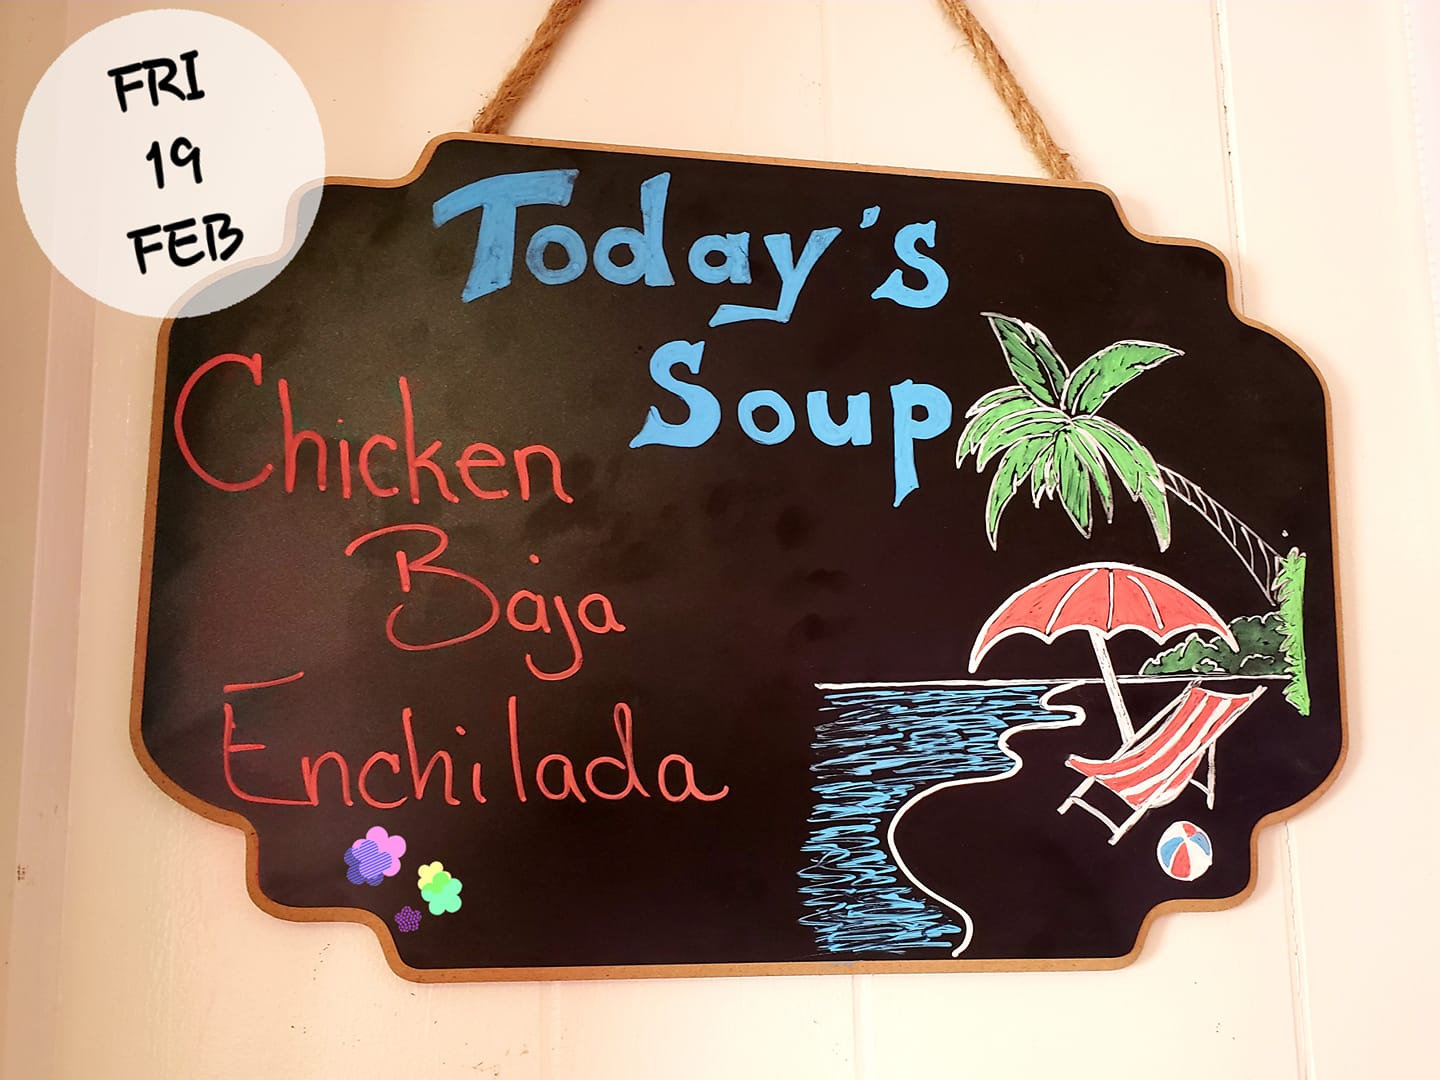 FRI
19
FEB
Today's
Soup
Chicken
Baja
Enchilada